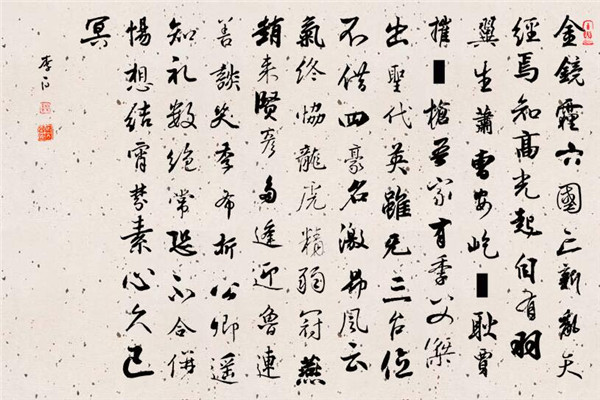 金鏡霾六國亡新亂天
經焉知高光起自有羽
翼生蕭曹安屹耿賈
摧槍吾家有季父傑
出聖代英雖无三台位
不借四豪名激昂風云
氣終協龍虎精弱冠燕
趙来賢彦多逢迎魯連
善談笑季布折公卿遥
知礼数絶常恐不合併
惕想結宵夢素心久已
冥
李白